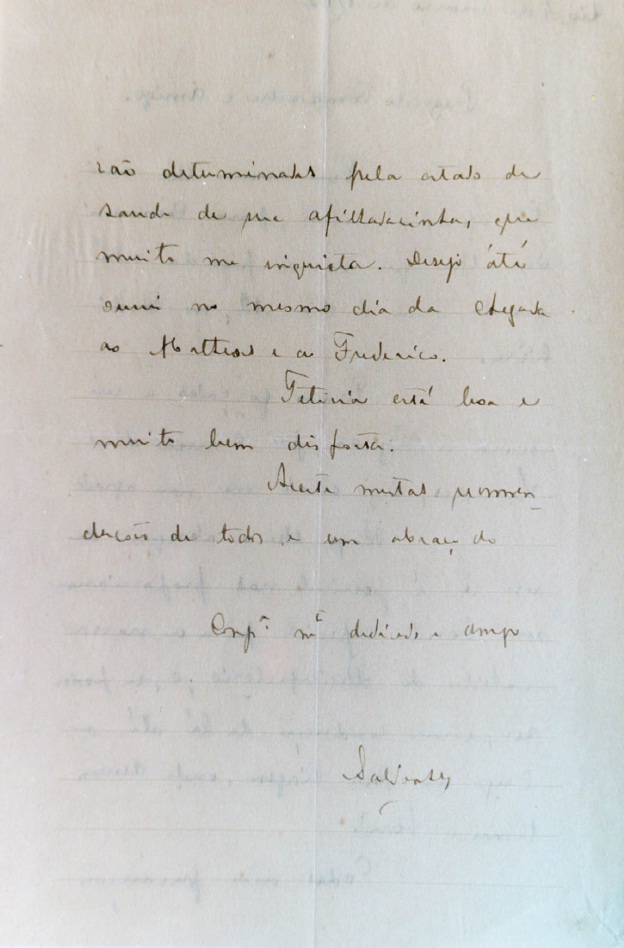 rão determinadas pelo estado de
saude de sua afilhadazinha, que
muito me inquieta. Desejo até
ouvir no mesmo dia da chegada
ao Matheus e ao Frederico.
está boa e
muito bem disposta.
Aceite muitas recommen-
dações de todos e um abraço do
Comp.e m.to dedicado e amigo